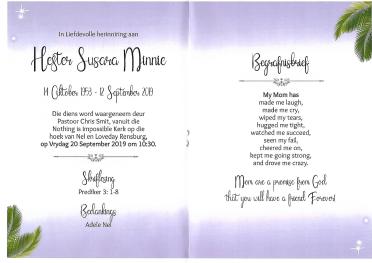 In Liefdevolle herinnering aan
Hester Susara Minnie
14 Oktober 1953 - 12 September 2019
Die diens word waargeneem deur
Pastoor Chris Smit, vanuit die
Nothing is Impossible Kerk op die
hoek van Nel en Loveday Rensburg,
op Vrydag 20 September 2019 om 10:30.
Skriflesing
Prediker 3: 1-8
Bedankings
Adele Nel
Begrafnisbrief
My Mom has
made me laugh,
made me cry,
wiped my tears,
hugged me tight,
watched me succeed,
seen my fail,
cheered me on,
kept me going strong,
and drove me crazy.
Mom are a promise from God
that you will have a friend Forever!